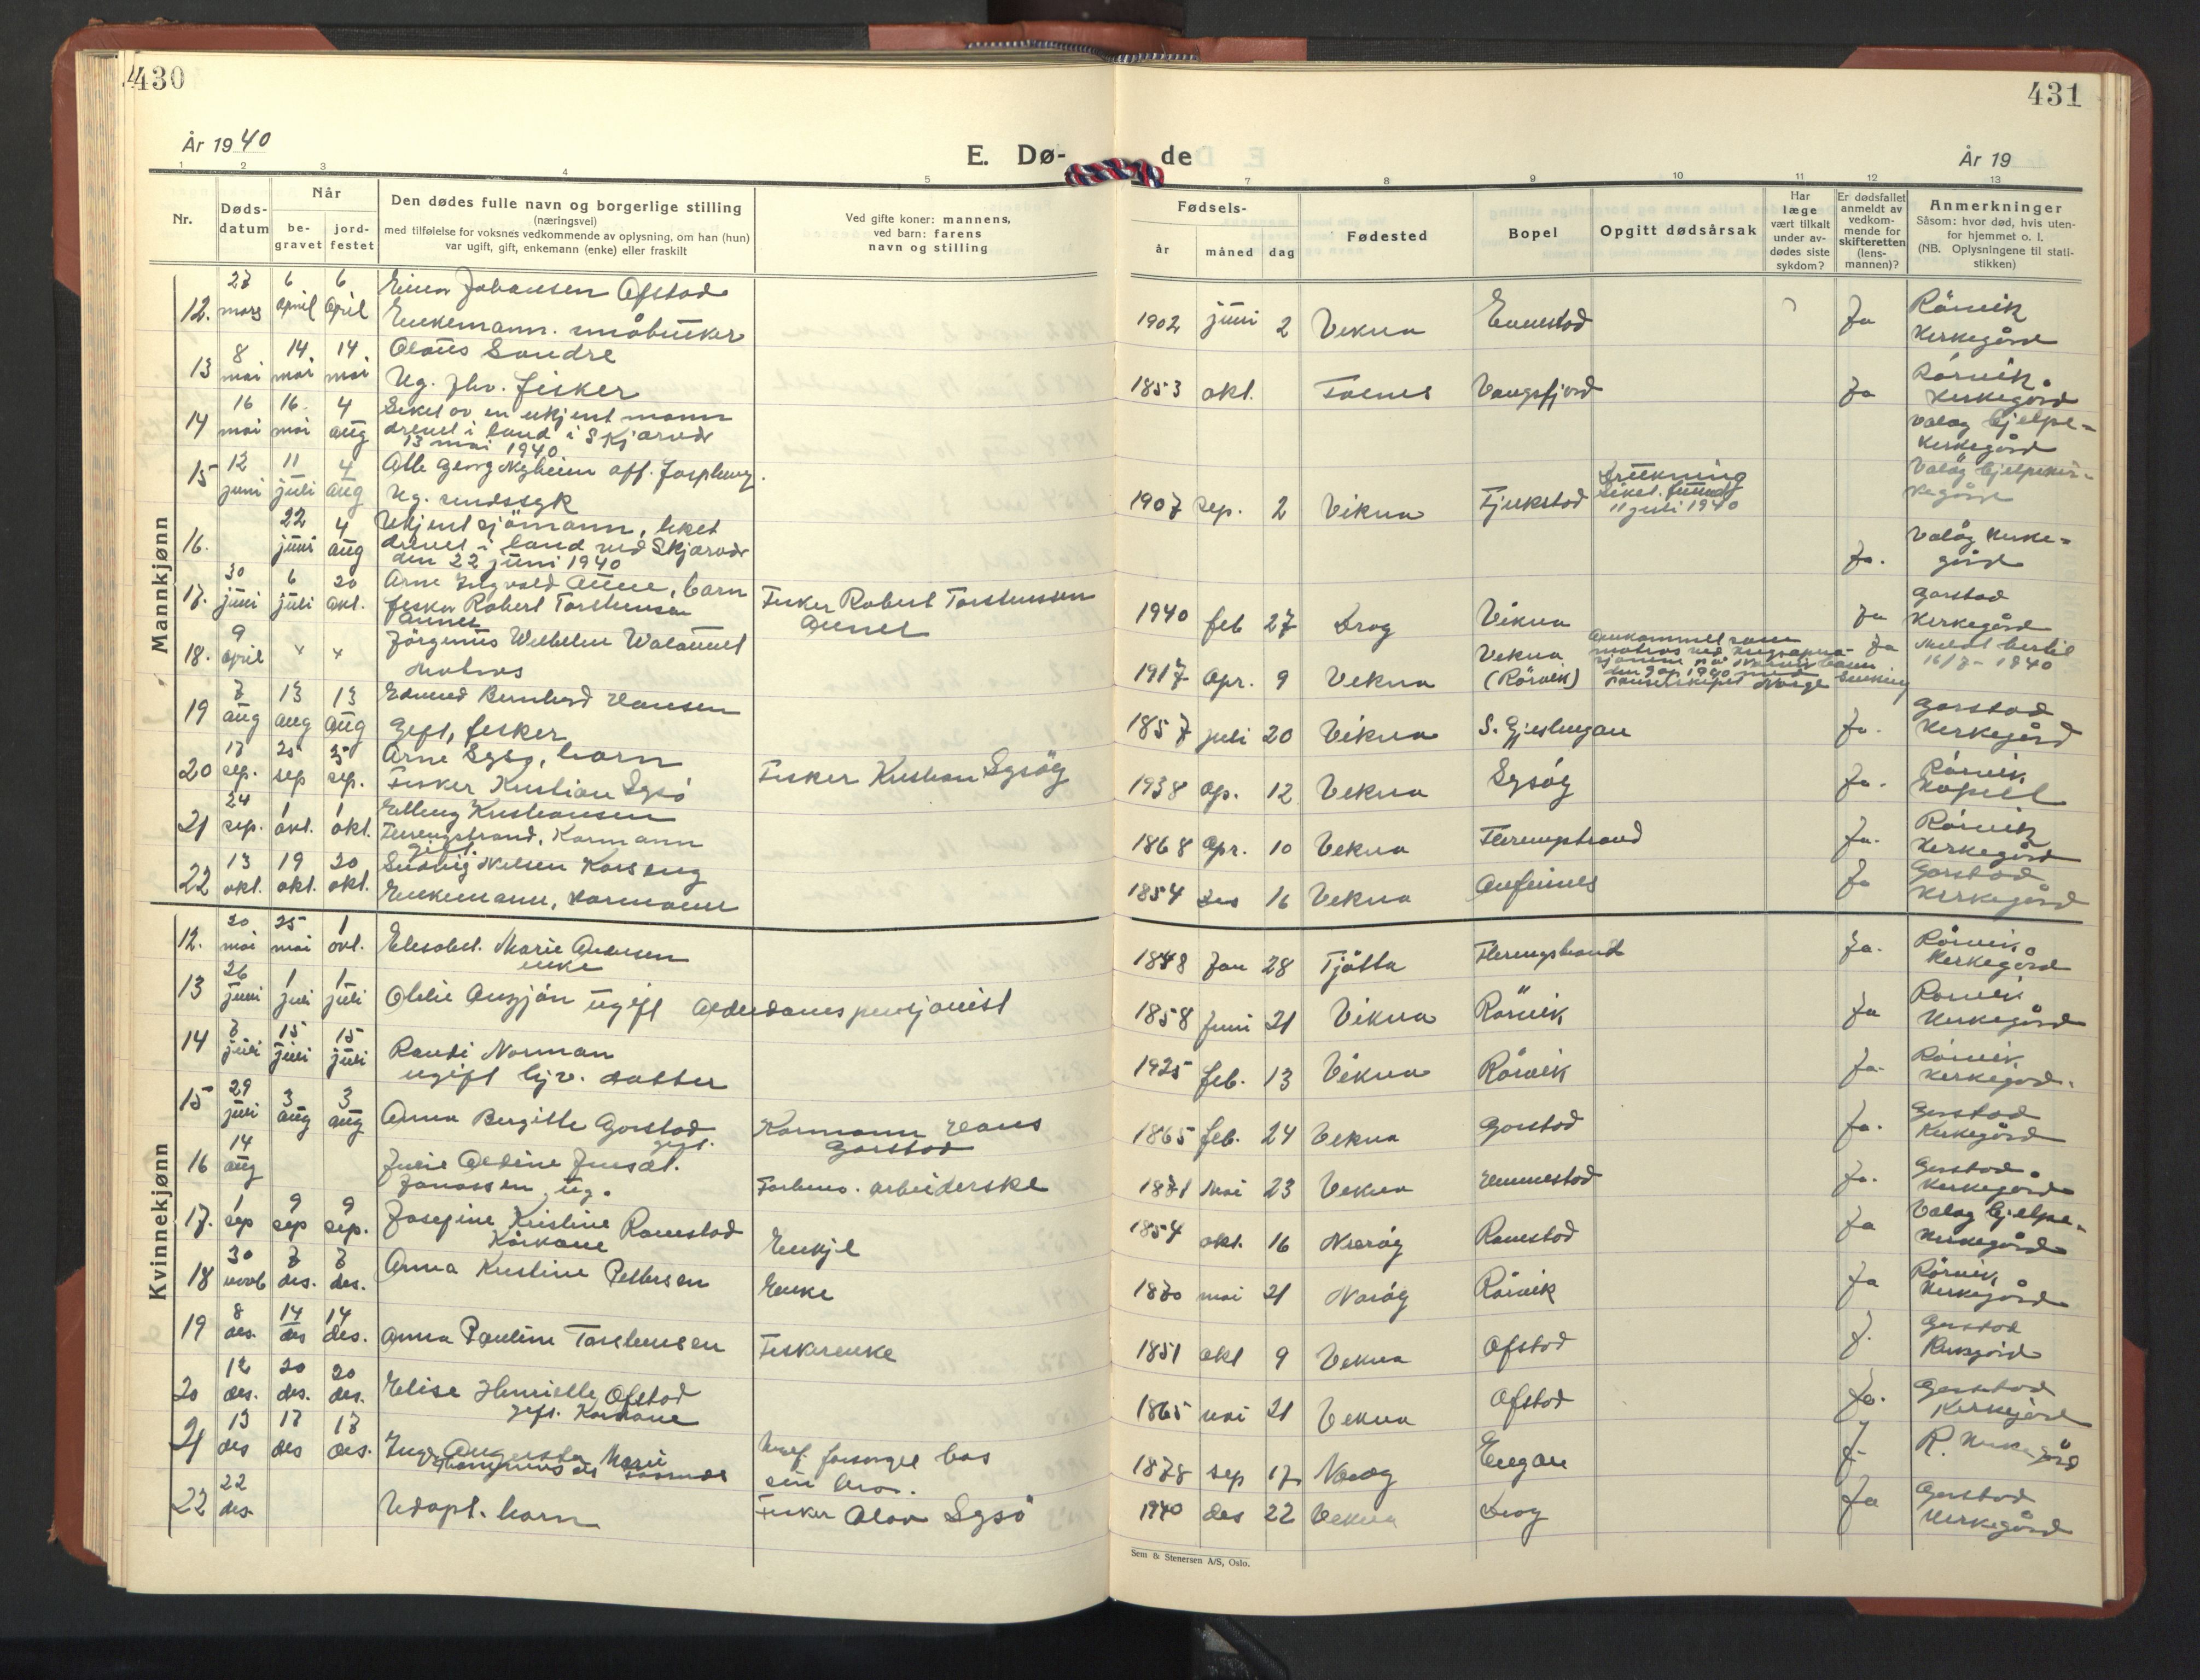 430
431
År 1940
E. Dø-
de
År 19
1 2 3 4 5
7 8 9 10 11 12 13
Nr.
Døds-
datum
Når
be-
gravet
jord-
festet
Den dødes fulle navn og borgerlige stilling
(næringsvei)
med tilføielse for voksnes vedkommende av oplysning, om han (hun)
var ugift, gift, enkemann (enke) eller fraskilt
Ved gifte koner: mannens,
ved barn: farens
navn og stilling
Fødsels-
år
måned
dag
Fødested
Bopel
Opgitt dødsårsak
Har
læge
vært tilkalt
under av-
dødes siste
sykdom?
Er dødsfallet
anmeldt av
vedkom-
mende for
skifteretten
(lens-
mannen)?
Anmerkninger
Såsom: hvor død, hvis uten-
for hjemmet o. l.
(NB. Oplysningene til stati-
stikken)
Mannkjønn
12. 27 mars 6 April 6 April Einar Johansen Ofstad
Enkemann. småbruker
1902 juni 2 Vikna Ja Rörvik
Kirkegård
13 8 mai 14. mai 14. mai Olaus Sandre
Ug. fisker
1853 okt. Vikna Ja Rörvik
Kirkegård
14 16 mai 16 mai 4 aug Liket av en ukjent mann
drevet i land i Skjærvær
13 mai 1940
Valøy hjelpe-
Kirkegård
15 12 juni 11 juli 4 aug Georg
Ug.
1907 sep. 2 Vikna Drukning
Liket funnet
11 juli 1940
Valøy hjelpekir-
kegård
16. 22 juni 4 aug Ukjent sjömann, liket
drevet i land ved Skjærvær
den 22 juni 1940
Ja. Valøy Kirke-
gård
17. 30 juni 6 juli 20 okt. Arne Ingvald Aune, barn
fisker Robert Torstensen
Aunet
Fisker Robert Torstensen
Aunet
1940 feb 27 Drag Vikna Ja Garstad
Kirkegård
18. 9 April " " Jörgenus Wilhelm
Matros
1917 Apr. 9 Vikna Vikna
(Rörvik)
Omkommet som
matros ved
den 9 ap. 1940 med
panserskipet Norge
Ja Meldt
16/7 - 1940
19 7 aug 13 aug 13 aug Edvard Bernhard Hansen
Gift, fisker
1857 juli 20 Vikna S. Gjeslingan Ja. Garstad
Kirkegård
20 17 sep. 25 sep 25 sep. Arne Sysø, barn
Fisker Kristian Sysö
Fisker Kristian Sysöy
1938 ap. 12 Vikna Sysöy Ja. Rörvik
Kapell
21 24 sep. 1 okt. 1 okt. Elling Kristiansen
Flerengstrand, Kårmann
gift.
1868 Apr. 10 Vikna Flerengstrand Ja. Rörvik
Kirkegård
22 13 okt. 19 okt. 20 okt. Ludvig Nilsen
Enkemann, Kårmann
1854 des 16 Vikna Anfinnes Ja Garstad
Kirkegård
Kvinnekjønn
12. 20 mai 25 mai 1 okt. Elisabet. Marie Andersen
enke
1848 Jan 28 Tjötta Flerengstrand Ja. Rörvik
Kirkegård
13 26 juni 1 juli 1 juli Olelie Anzjön ugift Alderdomspensjonist
1858 Juni 21 Vikna Rörvik Ja Rörvik
Kirkegård
14 7 juli 15 juli 15 juli Randi Norman
ugift hjv. datter
1925 feb. 13 Vikna Rörvik Ja. Rörvik
Kirkegård.
15 29 juli 3 aug 3 aug Anna Bergitte Garstad
gift.
Kårmann Hans
Garstad
1865 feb. 24 Vikna Garstad Ja. Garstad
Kirkegård
16 14 aug Julie Aldine
Jonassen, ug.
arbeiderske
1871 Mai 23 Vikna Emmestad Ja. Garstad
Kirkegård
17. 1 sep 9 sep 9 sep. Josefine Kristine Ramstad
Kårkone
Enkje
1854 okt. 16 Nærøy Ramstad Ja Valøy hjelpe-
Kirkegård
18 30 novb 7 des. 7 des. Anna Kristine Pettersen
Enke
1870 mai 21 Nærøy Rörvik Ja Rörvik
Kirkegård
19 8 des. 14 des 14 des. Anna Pauline Torstensen
Fiskerenke
1851 okt 9 Vikna Ofstad J. Garstad
Kirkegård
20 12 des. 20 des. 20 des. Elise Henriette Ofstad
gift. Kårkone
1865 mai 21 Vikna Ofstad Ja. Garstad
Kirkegård
21 13 des 17 des 17 des. Inga Augusta Marie
forsørget hos
sin bror.
1878 sep 17 Nærøy Engan J- R. Kirkegård
22 22 des. Udöpt. barn
Fisker Olav Sysö
1940 des 22 Vikna Drag Ja Garstad
Kirkegård
Sem & Stenersen A/S, Oslo.